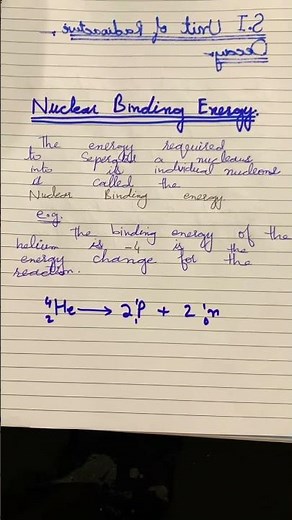 S.I Unit of Radioactive
Decay
Nuclear Binding Energy.
The energy required
to Seperate a nucleus
into is individual nucleons
is called the
Nuclear Binding energy
e.g.
the binding energy of the
helium is -4 is the
energy change for the
reaction.
⁴₂He ⟶ 2¹₁P + 2¹₀n